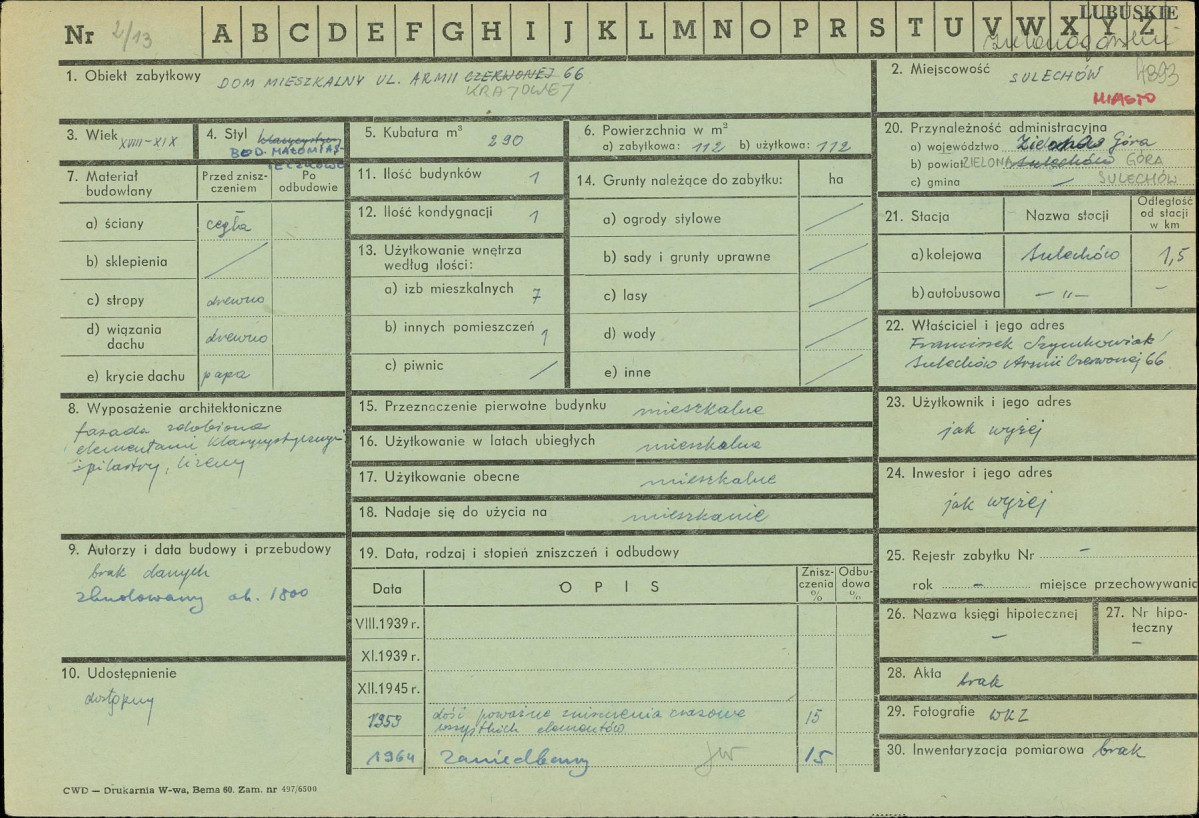 LUBUSKIE
Nr 2/13 A B C D E F G H I J K L M N O P R S T U V W X Y Z
1. Obiekt zabytkowy DOM MIESZKALNY UL. ARMII CZERWONEJ 66
KRAJOWEJ
2. Miejscowość SULECHÓW
MIASTO
3. Wiek XVIII-XIX
4. Styl klasycyst.
BUD. MAŁOMIAS-
TECZKOWE
5. Kubatura m³ 290
6. Powierzchnia w m²
a) zabytkowa: 112 b) użytkowa: 112
7. Materiał budowlany
Przed znisz-
czeniem
Po
odbudowie
a) ściany cegła
b) sklepienia /
c) stropy drewno
d) wiązania
dachu drewno
e) krycie dachu papa
8. Wyposażenie architektoniczne
fasada zdobiona
elementami klasycystycznymi
: pilastry, lizeny
9. Autorzy i data budowy i przebudowy
brak danych
zbudowany ok. 1800
10. Udostępnienie
dostępny
11. Ilość budynków 1
12. Ilość kondygnacji 1
13. Użytkowanie wnętrza
według ilości:
a) izb mieszkalnych 7
b) innych pomieszczeń 1
c) piwnic /
14. Grunty należące do zabytku: ha
a) ogrody stylowe /
b) sady i grunty uprawne /
c) lasy /
d) wody /
e) inne /
15. Przeznaczenie pierwotne budynku mieszkalne
16. Użytkowanie w latach ubiegłych mieszkalne
17. Użytkowanie obecne mieszkalne
18. Nadaje się do użycia na mieszkanie
19. Data, rodzaj i stopień zniszczeń i odbudowy
Data OPIS Znisz-
czenia
%
Odbu-
dowa
%
VIII.1939 r.
XI.1939 r.
XII.1945 r.
1959 dość poważne zniszczenia czasowe
wszystkich elementów 15
1964 zaniedbany 15
20. Przynależność administracyjna
a) województwo Zielona Góra
b) powiat Sulechów ZIELONA GÓRA
c) gmina — SULECHÓW
21. Stacja Nazwa stacji Odległość
od stacji
w km
a) kolejowa Sulechów 1,5
b) autobusowa — „ — –
22. Właściciel i jego adres
Franciszek Szymkowiak
Sulechów Armii Czerwonej 66
23. Użytkownik i jego adres
jak wyżej
24. Inwestor i jego adres
jak wyżej
25. Rejestr zabytku Nr –
rok – miejsce przechowywania
26. Nazwa księgi hipotecznej
–
27. Nr hipo-
teczny
–
28. Akta brak
29. Fotografie WKZ
30. Inwentaryzacja pomiarowa brak
CWD — Drukarnia W-wa, Bema 60. Zam. nr 497/6500